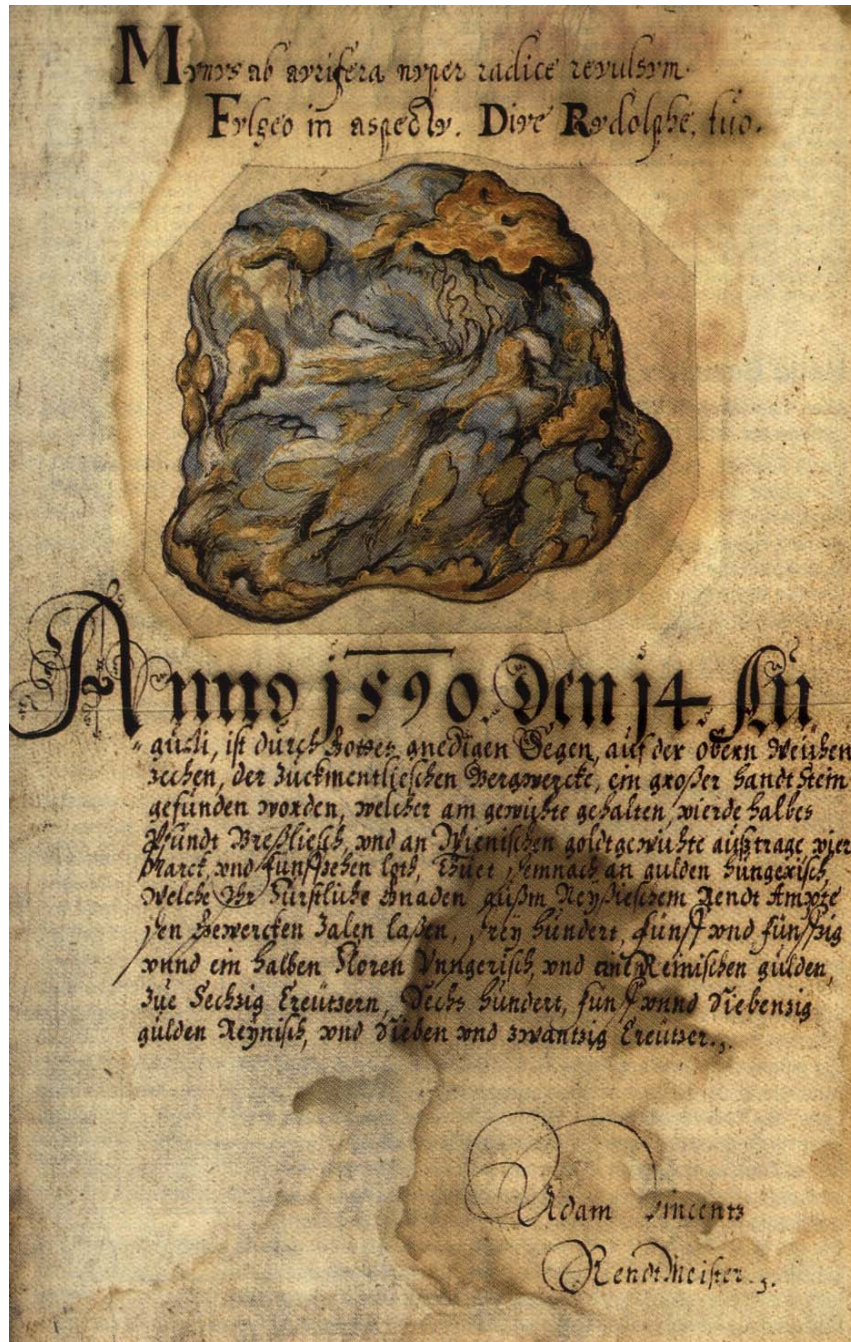 Mvnvs ab avrifera nvper radice revulsvm.
Fvlgeo in aspectv. Dive Rvdolphe, tuo.
Anno 1590. Den 14. Au
gusti, ist durch Gottes gnedigen Segen, auf der obern Reichen
Zechen, der Zuckmentlieschen Bergwercke, ein großer handt Stein
gefunden worden, welcher am gewichte gehalten, vierde halbes
Pfundt Breßlisch, vnd an Wienischen goldtgewichte außtrage vier
Marck, vnd funffzehen loth, Thuet demnach an gulden hungerisch,
Welche Ihr Furstliche Gnaden außm Neyßieschem Rendt Ampte
den Gewercken Zalen laßen, drey hundert, funff vnd funffzig
vnnd ein halben floren Vngerisch, vnd Reinischen gulden,
Zue Sechzig Creutzern, Sechs hundert, funff vnnd Siebenzig
gulden Reynisch, vnd Sieben vnd zwantzig Creutzer.
Adam Vincentz
RendtMeister.